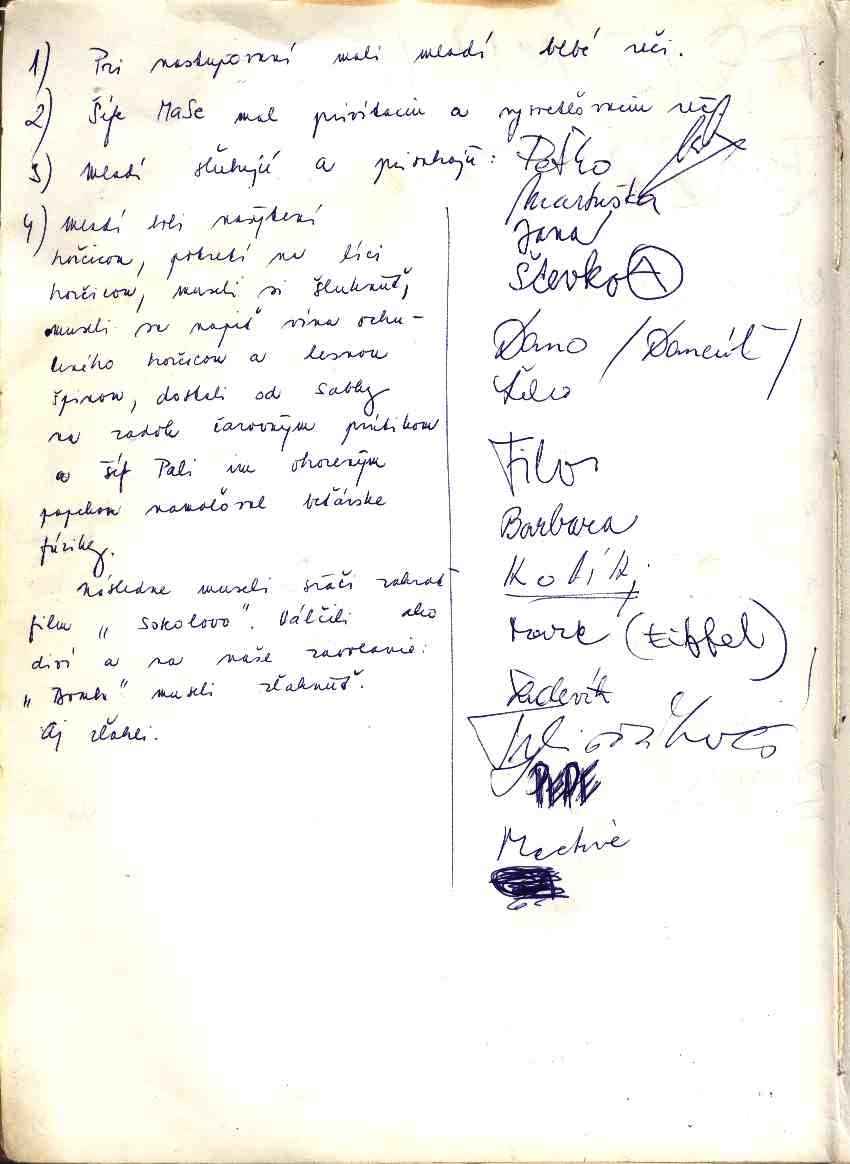 1) Pri nastupovaní mali mladí blbé reči.
2) Šéfe MaSe mal privítaciu a vysvetľovaciu reč
3) Mladí sľubujú a prisahajú:
4) Mladí boli nasýtení
horčicou, potretí na líci
horčicou, museli si šluknúť,
museli sa napiť vína ochu-
teného horčicou a lesnou
špinou, dostali od Sabky
na zadok čarovným prútikom
a šéf Pali im ohoreným
papekom namaľoval beťárske
fúziky.
Následne museli sráči zahrať
film „Sokolovo". Válčili ako
diví a na naše zavolanie:
„Bomba" museli zľahnúť.
Aj zľahli.
Peťko
Martuška
Jana
Števko A
Dano / Danciúľ /
Filo
Barbara
Kolík
Mark (Eiffel)
PEPE